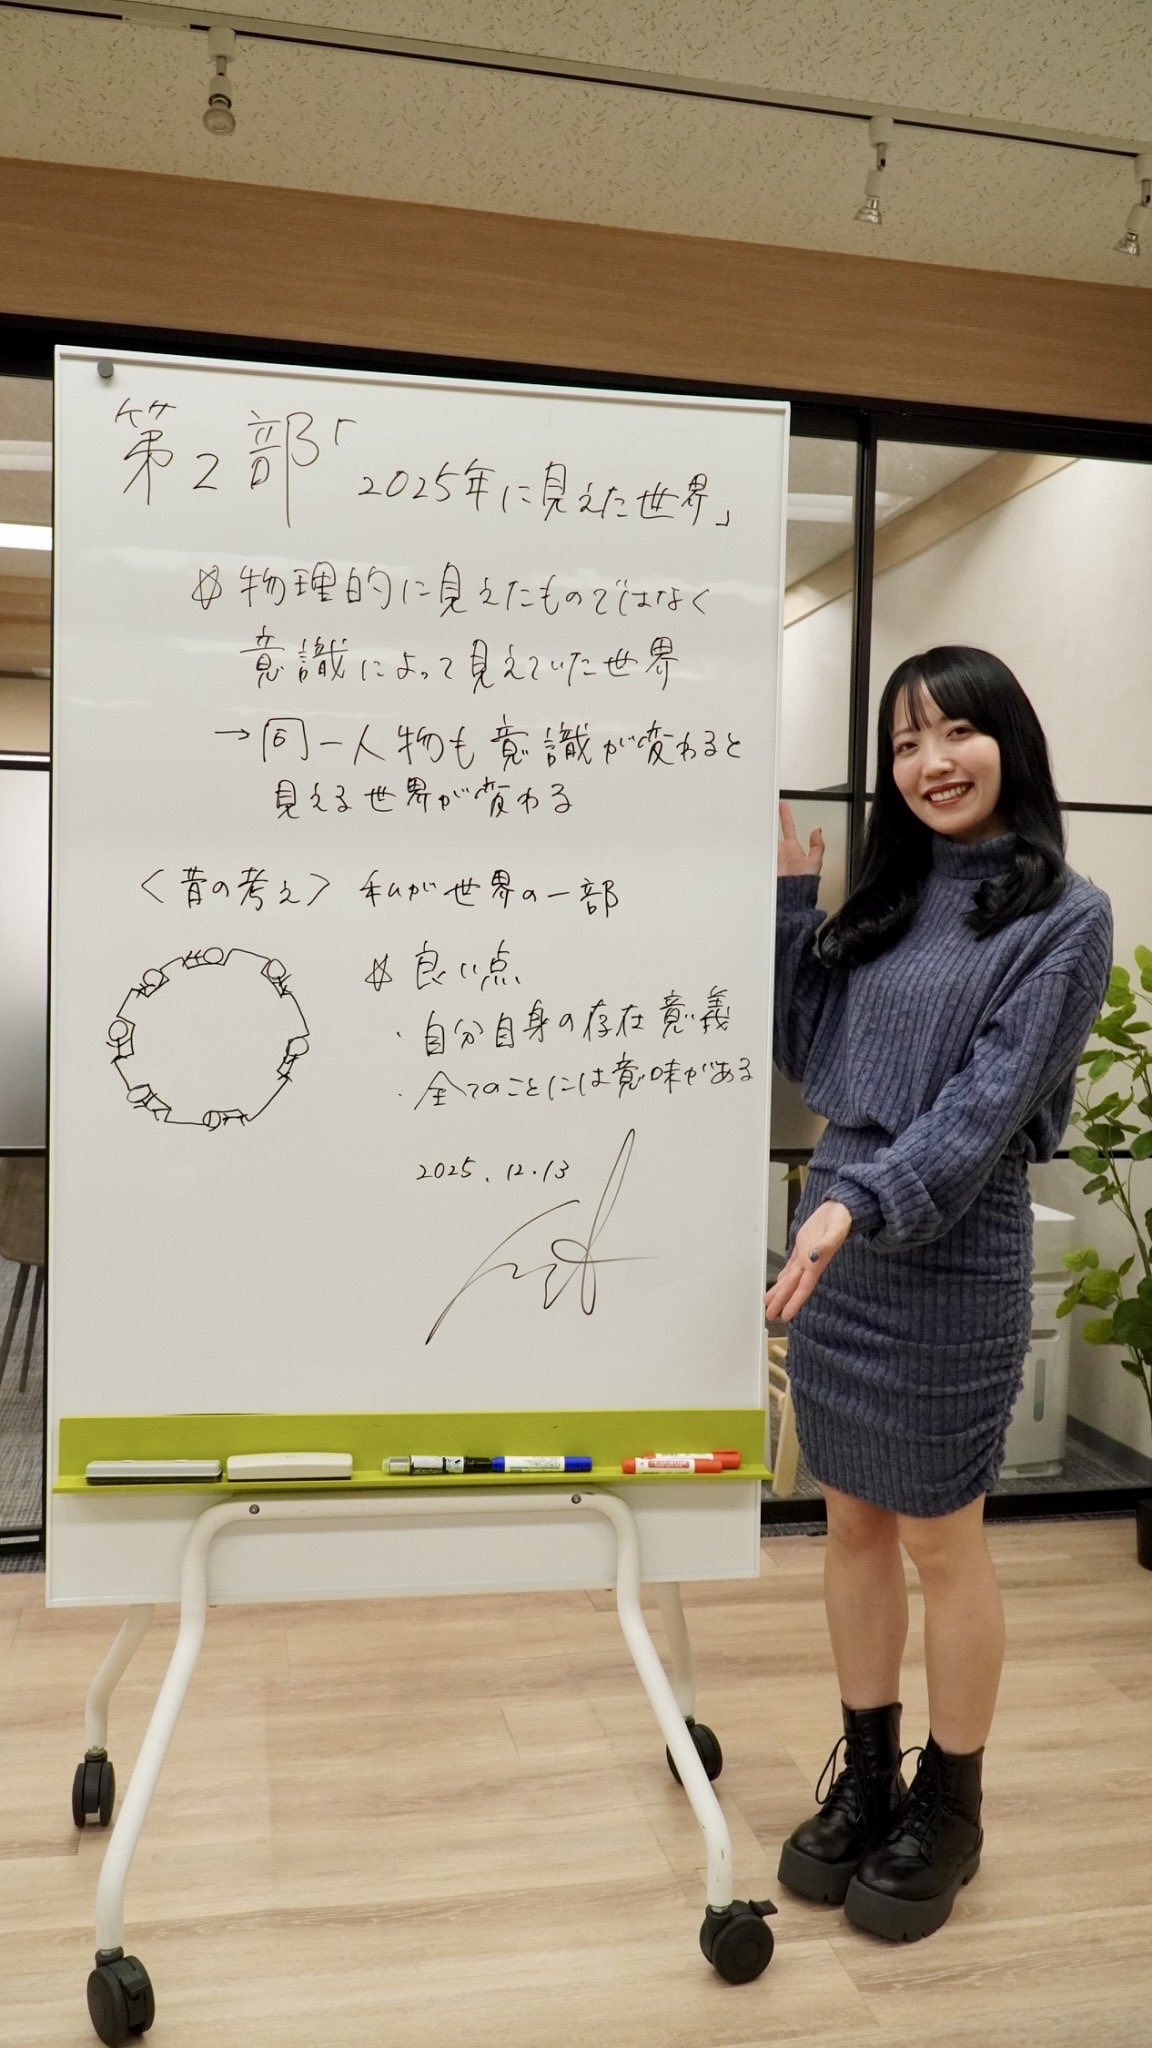 第2部「2025年に見えた世界」
☆物理的に見えたものではなく
意識によって見えていた世界
→同一人物も意識が変わると
見える世界が変わる
〈昔の考え〉私が世界の一部
☆良い点
・自分自身の存在意義
・全てのことには意味がある
2025.12.13